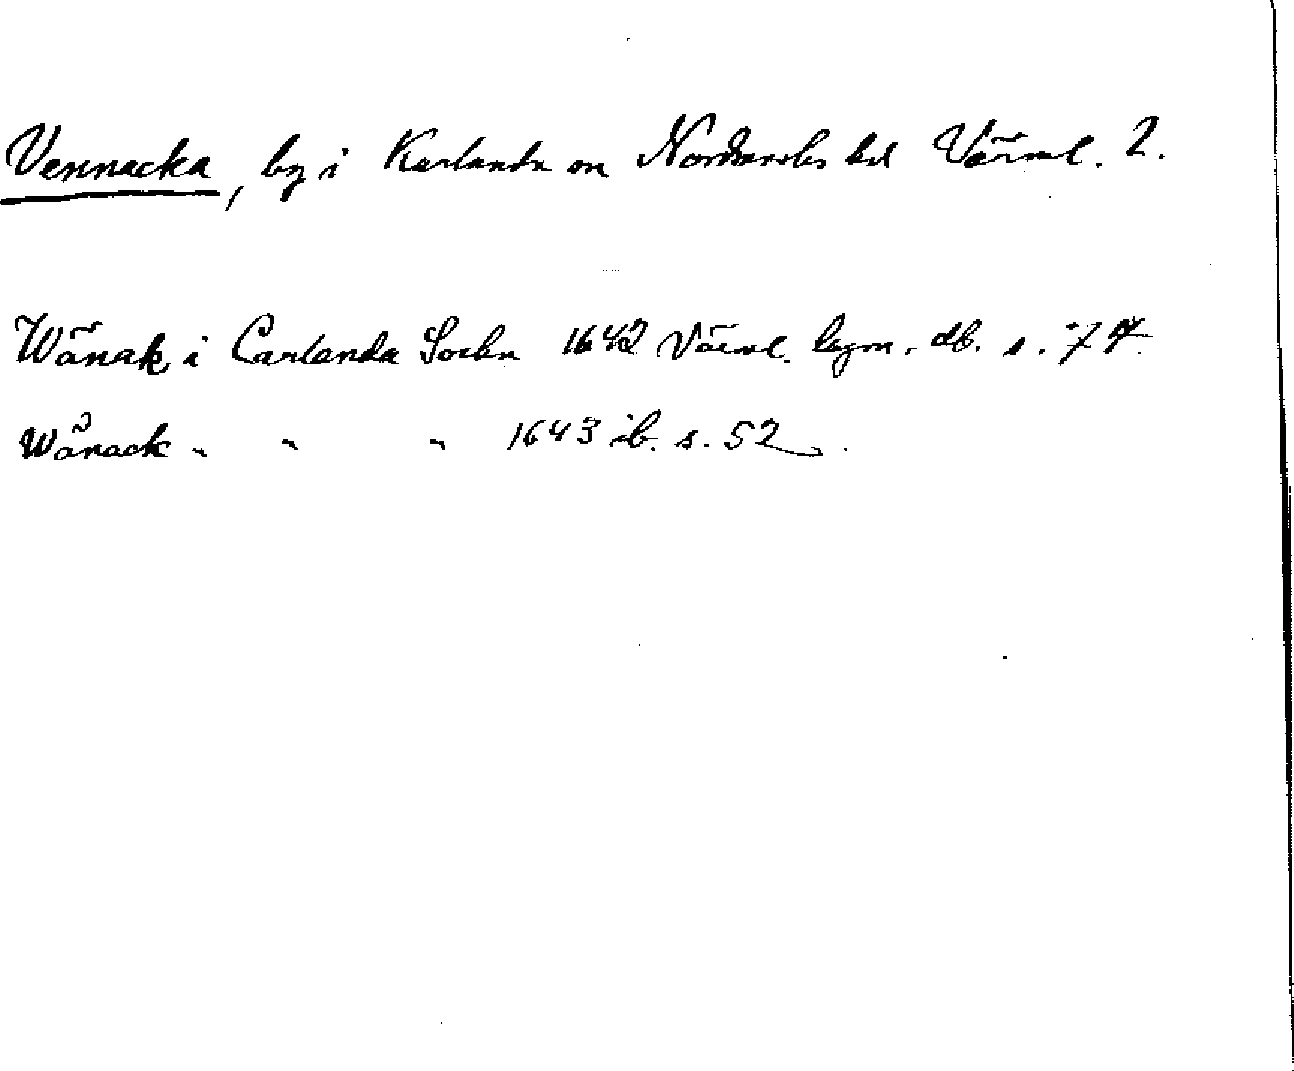 Vennacka, by i Karlanda sn Nordmarks hd Värml. l.
Wänak i Carlanda Sochn 1642 Värml. lagm. db. s. 74.
Wänack " " " 1643 ib. s. 52.